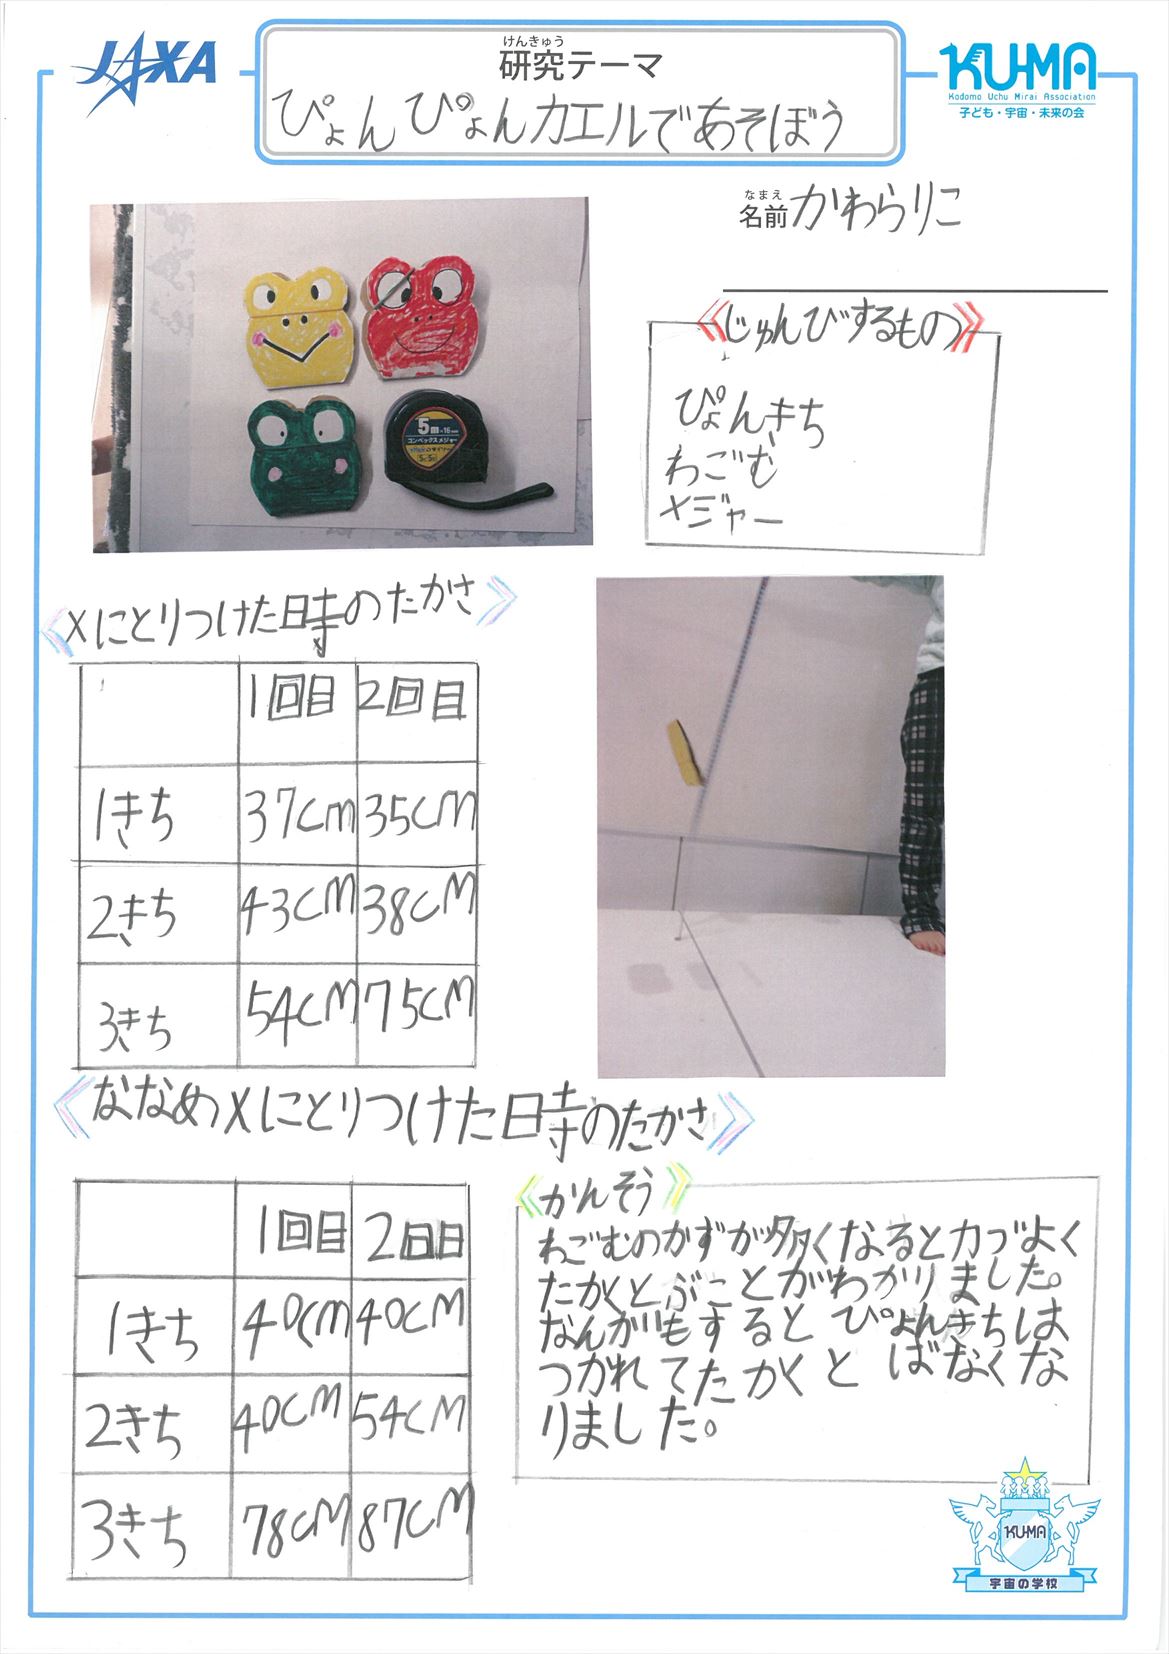 JAXA
けんきゅう
研究テーマ
KU-MA
Kodomo Uchu Mirai Association
子ども・宇宙・未来の会
ぴょんぴょんカエルであそぼう
なまえ
名前 かわらりこ
《じゅんびするもの》
ぴょんきち
わごむ
メジャー
5m×16mm
コンベックスメジャー
《Xにとりつけた時のたかさ》
1回目 2回目
1きち 37cm 35cm
2きち 43cm 38cm
3きち 54cm 75cm
《ななめXにとりつけた時のたかさ》
1回目 2回目
1きち 40cm 40cm
2きち 40cm 54cm
3きち 78cm 87cm
《かんそう》
わごむのかずが多くなると力づよく
たかくとぶことがわかりました。
なんがいもするとぴょんきちは
つかれてたかくとばなくな
りました。
KU-MA
宇宙の学校